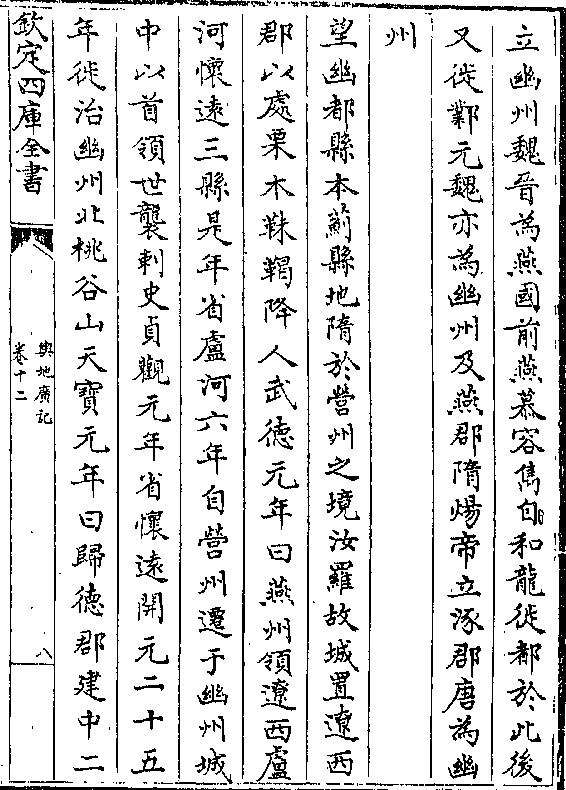 立幽州魏晉為燕國前燕慕容雋自和龍徙都於此後
又徙鄴元魏亦為幽州及燕郡隋煬帝立涿郡唐為幽
州
望幽都縣本薊縣地隋於營州之境汝羅故城置遼西
郡以處粟末靺鞨降人武德元年曰燕州領遼西盧
河懷遠三縣是年省盧河六年自營州遷于幽州城
中以首領世襲刺史貞觀元年省懷遠開元二十五
年徙治幽州北桃谷山天寶元年曰歸德郡建中二
欽定四庫全書
輿地廣記
卷十二
八